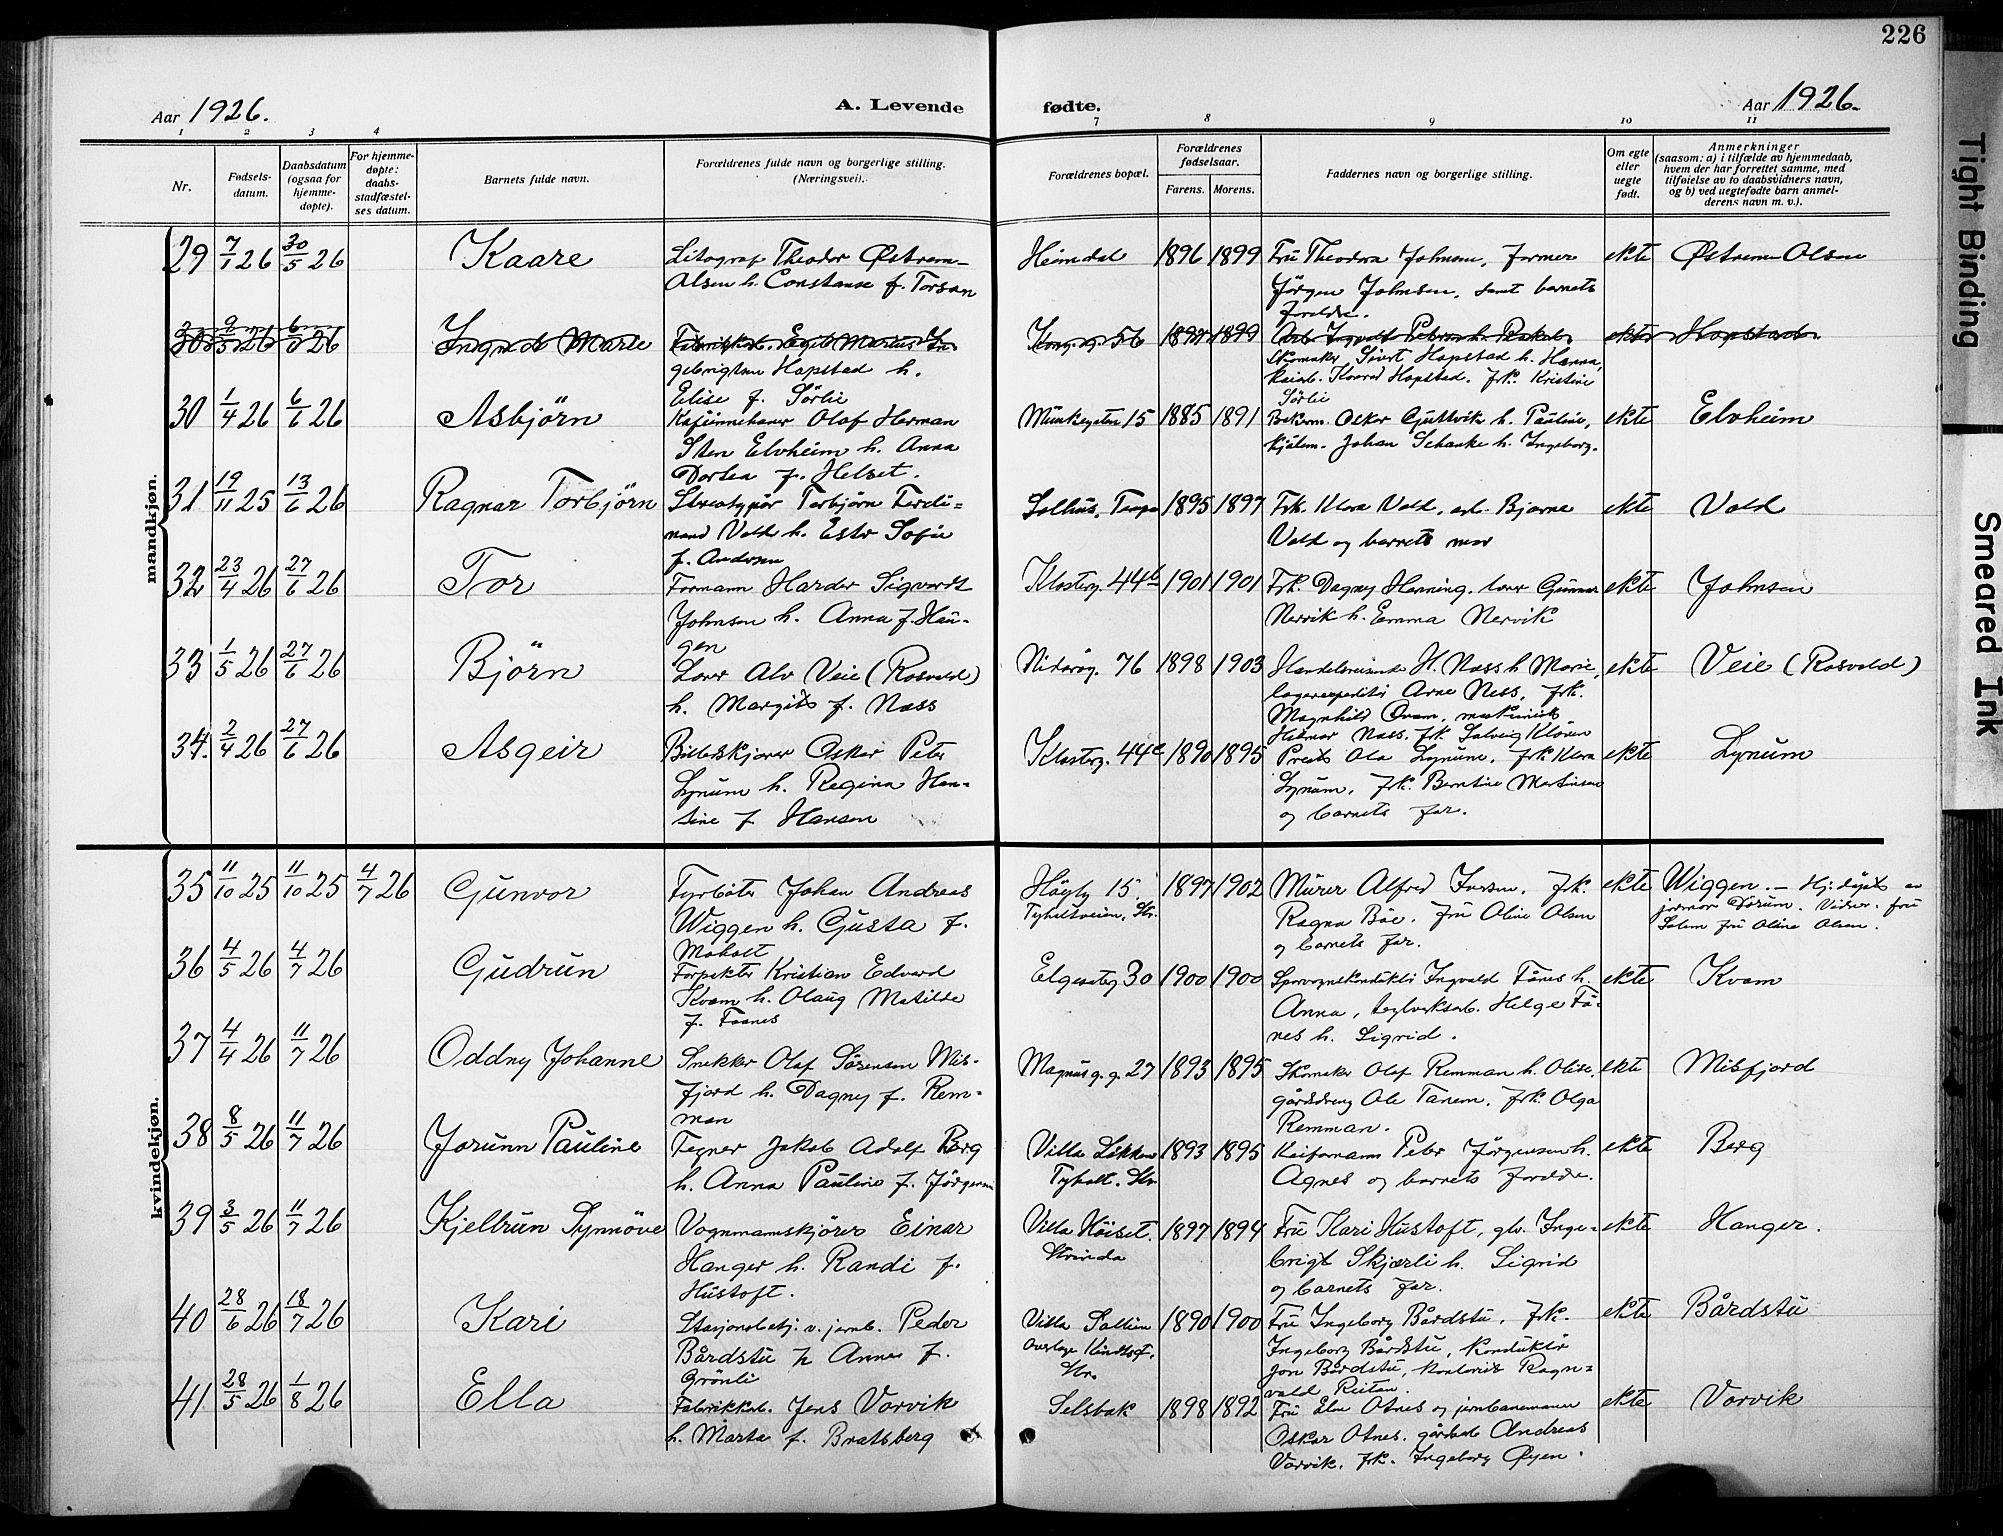 226
Aar 1926.
A. Levende
fødte.
Aar 1926.
1 2 3 4
7 8 9 10 11
Nr.
Fødsels-
datum.
Daabsdatum
(ogsaa for
hjemme-
døpte).
For hjemme-
døpte:
daabs-
stadfæstel-
ses datum.
Barnets fulde navn.
Forældrenes fulde navn og borgerlige stilling.
(Næringsvei).
Forældrenes bopæl.
Forældrenes
fødselsaar.
Farens. Morens.
Faddernes navn og borgerlige stilling.
Om egte
eller
uegte
født.
Anmerkninger
(saasom: a) i tilfælde av hjemmedaab,
hvem der har forrettet samme, med
tilføielse av to daabsvidners navn,
og b) ved uegtefødte barn anmel-
derens navn m. v.).
mandkjøn.
29 7/1 26 30/5 26 Kaare
Litograf Theodor Østrem-
Olsen h. Constanse f. Torsan
Heimdal 1896 1899
Fru Theodora Johnsen, former
Jörgen Johnsen, samt barnets
foreldre.
ekte Østrem-Olsen
30 9/5 26 6/6 26 Ingrid Marie
Fabrikkarb. Egil Marius In-
gebrigtsen Hopstad h.
Elise f. Sörlie
Kong. g. 56 1899
Arb. Ingvald Petersen h. Rakel,
Skomaker Sivert Hopstad h. Hanna,
kaiarb. Konrad Hopstad. frk. Kristine
Sörlie
ekte Hopstad
30 1/4 26 6/6 26 Asbjörn
Kafeinnehaver Olaf Herman
Sten Elvheim h. Anna
Dortea f. Helset.
Munkegaten 15 1885 1891
Bokerm. Osker Guttvik h. Pauline,
Johan Schanke h. Ingeborg.
ekte Elvheim
31 19/11 25 13/6 26 Ragnar Torbjörn
Stereotypör Torbjörn Ferdi-
nand Vold h. Ester Sofie
f. Andersen
Solhus, Tempe 1895 1897
Frk. Klara Vold, arb. Bjarne
Vold og barnets mor
ekte Vold
32 23/4 26 27/6 26 Tor
Formann Harder Sigvardt
Johnsen h. Anna f. Hau-
gen
Klosterg. 44b 1901 1901
Frk. Dagny Henning. lærer Gunnar
Nervik h. Emma Nervik
ekte Johnsen
33 1/5 26 27/6 26 Björn
Lærer Alv Veie (Rosvold)
h. Margit f. Næss
Nidarög. 76 1898 1903
Handelsreisende H. Næss h. Marie,
lagerexpeditör Arne Ness, frk.
Magnhild Kvam, maskinist
Hilmar Næss. frk. Solveig Klören
ekte Veie (Rosvold)
34. 2/4 26 27/6 26 Asgeir
Billetskjører Oskar Peter
Lynum h. Regina Han-
sine f. Hansen
Klosterg. 44c 1890 1895
Prest Ola Lynum, frk Klara
Lynum, frk. Berntine Martinsen
og barnets far.
ekte Lynum
kvindekjøn.
35 11/10 25 11/10 25 4/7 26 Gunvor
Fyrböter Johan Andreas
Wiggen h. Gusta f.
Moholt
Högly 15
Tyholtveien, Str. 1897 1902
Murer Alfred Iversen, frk.
Ragna Böe. fru Oline Olsen
og barnets far.
ekte Wiggen. — Hj. döpt av
jormor Sörum. Vidner. fru
Solem fru Oline Olsen.
36 4/5 26 4/7 26 Gudrun
Forpakter Kristian Edvard
Kvam h. Olaug Matilde
f. Faanes
Elgesæterg 30 1900 1900
Sporvognskonduktör Ingvald Fånes h.
Anna, teglverksarb. Helge Få-
nes h. Sigrid.
ekte Kvam
37 4/4 26 11/7 26 Oddny Johanne
Snekker Olaf Sörensen Mis-
fjord h. Dagny f. Rem-
man
Magnus g. g. 27 1893 1895
Skomaker Olaf Remman h. Olise.
gårdsdreng Ole Tanem, frk. Olga
Remman.
ekte Misfjord
38 8/5 26 11/7 26 Jorunn Pauline
Tegner Jakob Adolf Berg
h. Anna Pauline f. Jörgensen
Villa Lökken
Tyholt. Str. 1893 1895
Kaiformann Peter Jörgensen h.
Agnes og barnets foreldre.
ekte Berg
39 3/5 26 11/7 26 Kjellrun Synnöve
Vognmannskjörer Einar
Hanger h. Randi f.
Hustoft.
Villa Höiset.
Strinda 1897 1894
Fru Kari Hustoft, gbr. Inge-
brigt Skjærli h. Sigrid
og barnets far.
ekte Hanger.
40 28/6 26 18/7 26 Kari
Stasjonsbetj. v. jernb. Peder
Bårdstu h Anne f.
Grönli
Villa Solliun
Overlege Kindtsgt,
Str. 1890 1900
Fru Ingeborg Bårdstu, frk.
Ingeborg Bårdstu, konduktör
Jon Bårdstu, kontorist Ragn-
vald Reitan.
ekte Bårdstu
41 28/5 26 1/8 26 Ella
Fabrikkarb. Jens Vorvik
h. Marta f. Bratsberg
Selsbak 1898 1892
Fru Else Otnes og jernbanemann
Oskar Otnes, gårdarb Andreas
Vorvik, frk. Ingeborg Öyen.
ekte Vorvik
Tight Binding
Smeared Ink